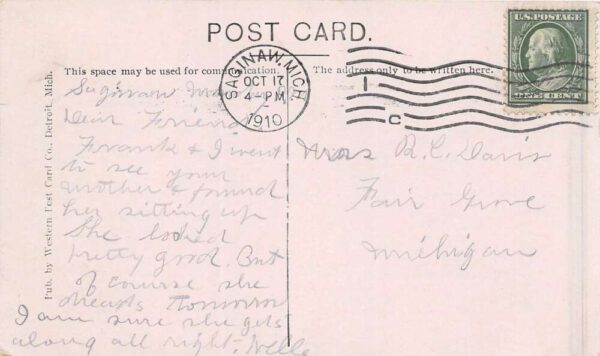 POST CARD.
This space may be used for communication.
The address only to be written here.
SAGINAW, MICH.
OCT 17
4-PM
1910
1
C
U.S. POSTAGE
ONE CENT
Pub. by Western Post Card Co., Detroit, Mich.
Saginaw
Dear Friend
Frank & I went
to see your
mother & found
her sitting up
She looked
pretty good. But
of course she
dreads tomorrow
I am sure she gets
along all right.
Mrs R. C. Davis
Fair Grove
Michigan